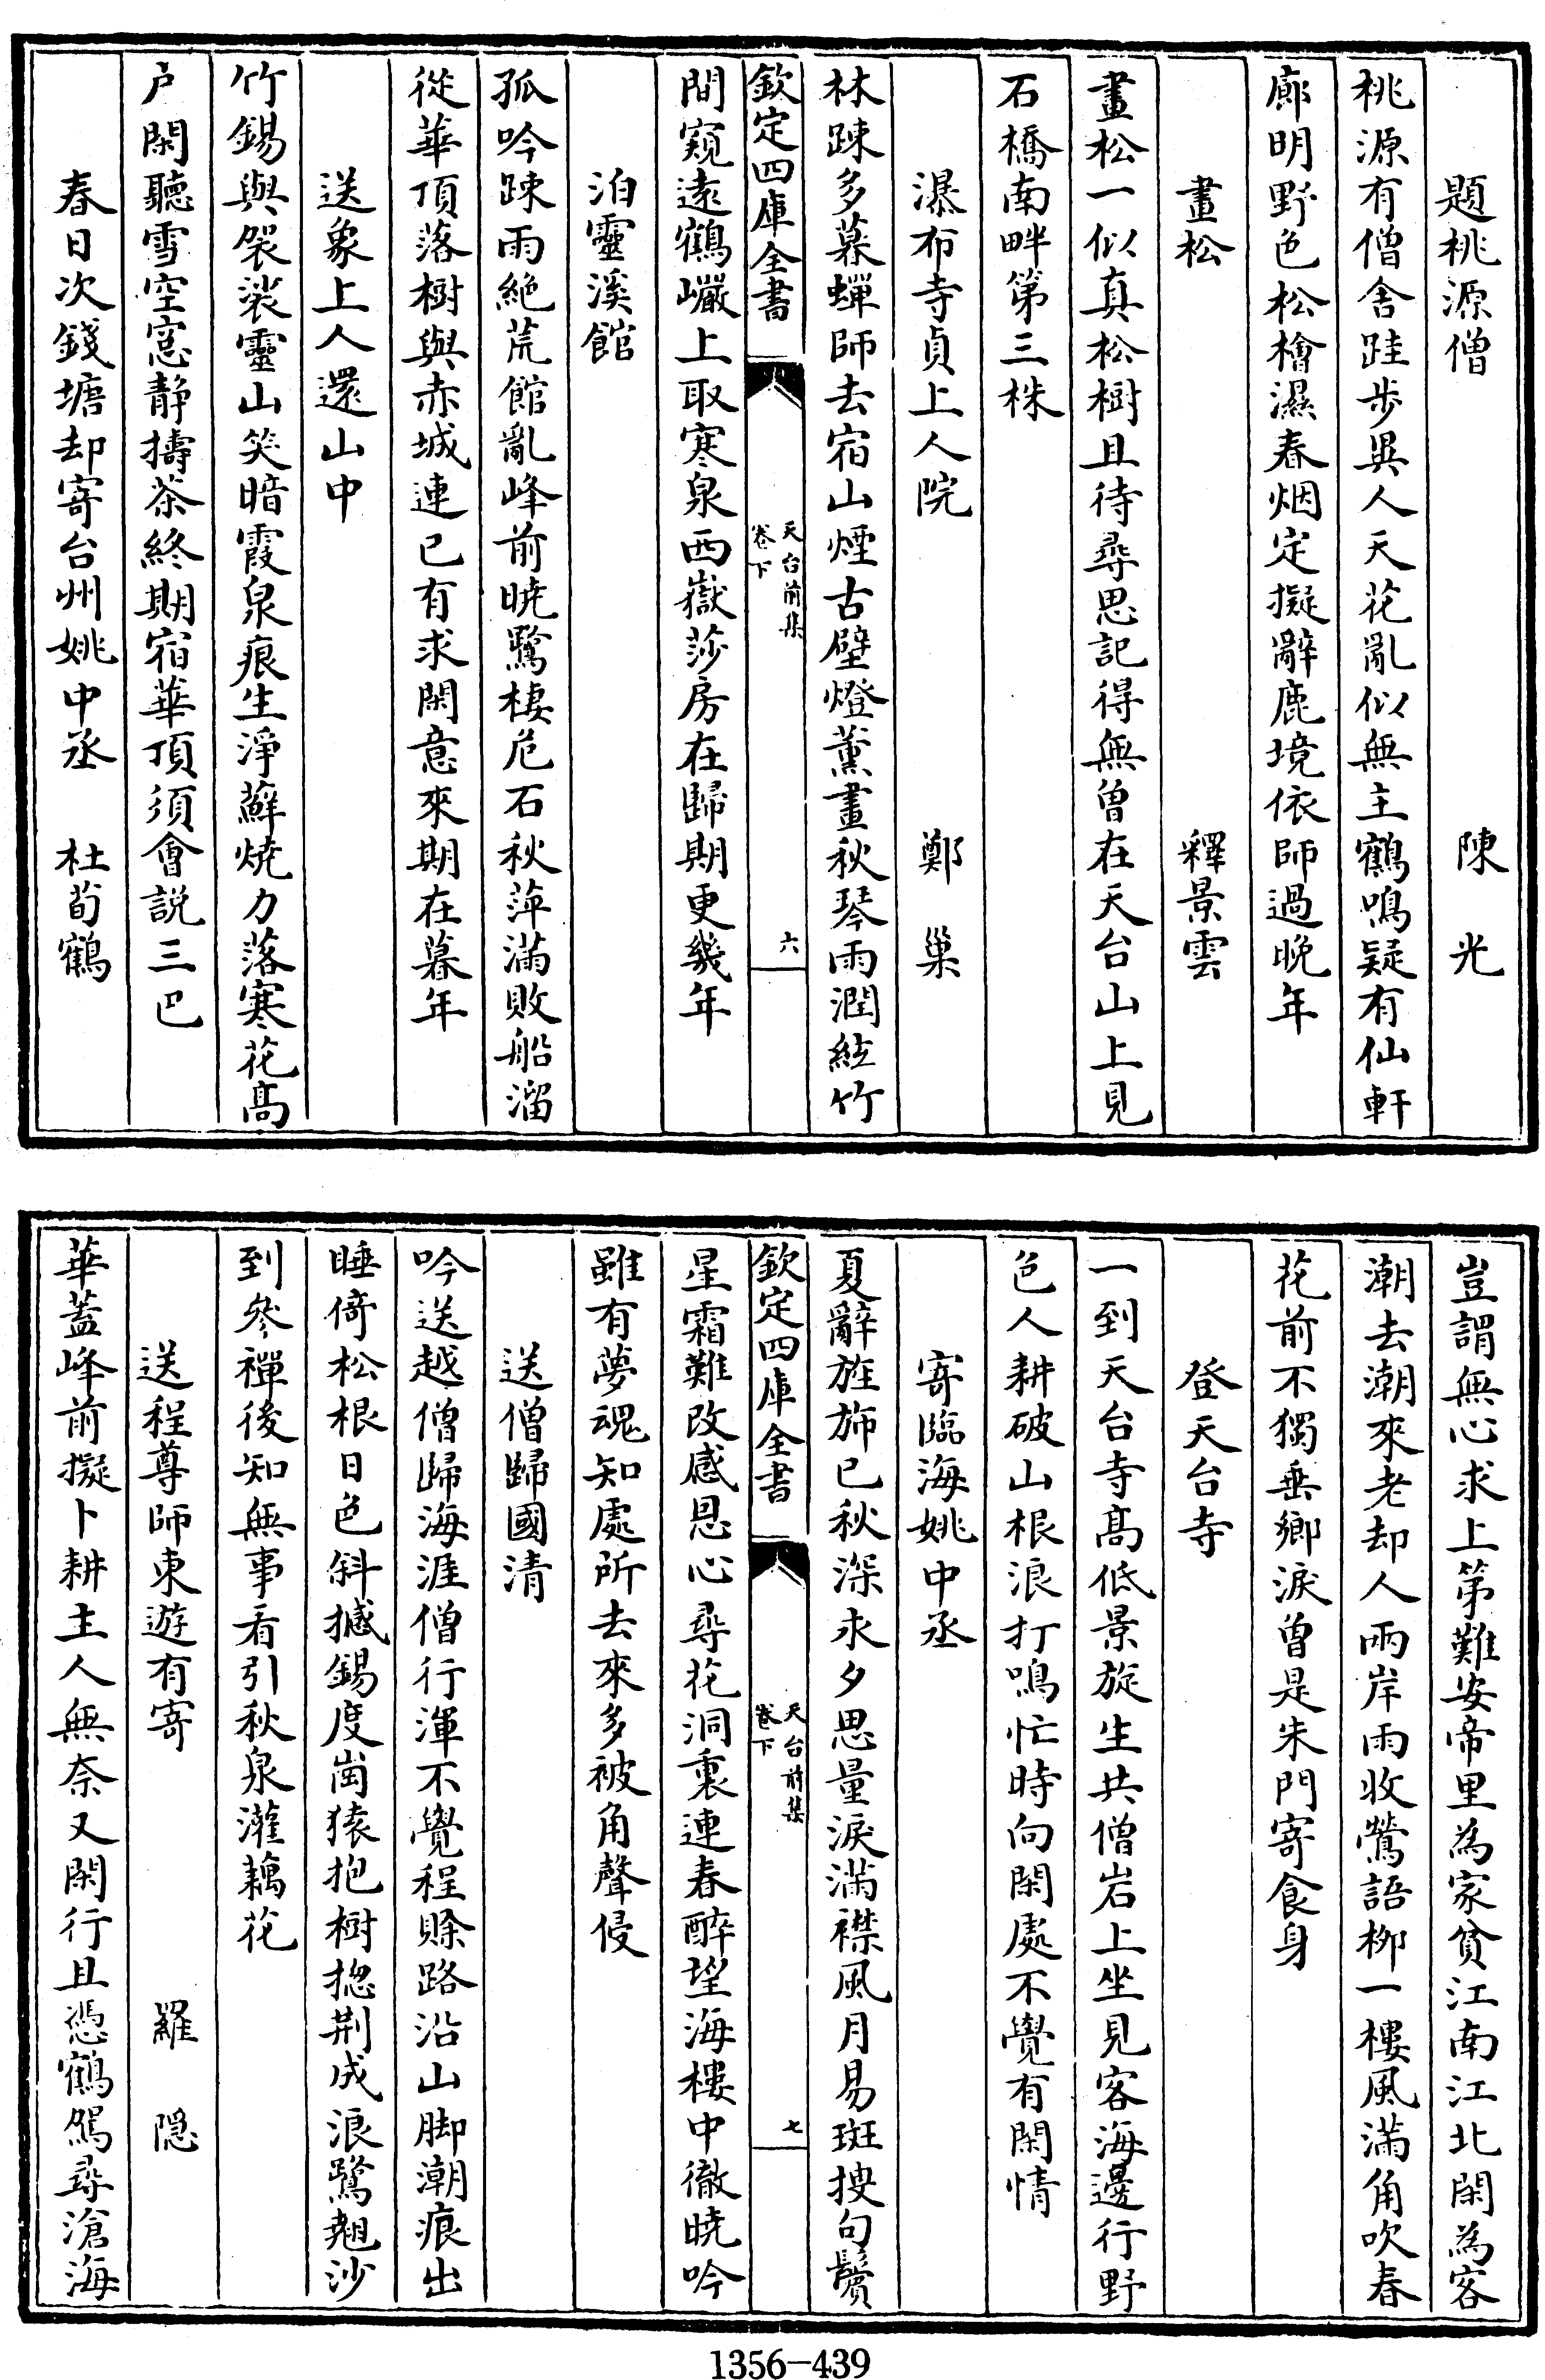 題桃源僧 陳光
桃源有僧舍跬步異人天花亂似無主鶴鳴疑有仙軒
廊明野色松檜濕春烟定擬辭鹿境依師過晚年
畫松 釋景雲
畫松一似真松樹且待尋思記得無曽在天台山上見
石橋南畔第三株
瀑布寺貞上人院 鄭巢
林踈多暮蟬師去宿山煙古壁燈薰畫秋琴雨潤絃竹
欽定四庫全書 天台前集卷下 六
間窺遠鶴巗上取寒泉西嶽莎房在歸期更幾年
泊靈溪館
孤吟踈雨絶荒館亂峰前曉鷺棲危石秋萍滿敗船溜
從華頂落樹與赤城連已有求閑意來期在暮年
送象上人還山中
竹錫與袈裟靈山笑暗霞泉痕生淨蘚燒力落寒花髙
户閑聽雪空窓静擣茶終期宿華頂須會説三巴
春日次錢塘却寄台州姚中丞 杜荀鶴
豈謂無心求上第難安帝里為家貧江南江北閑為客
潮去潮來老却人兩岸雨收鶯語柳一樓風滿角吹春
花前不獨垂鄉淚曽是朱門寄食身
登天台寺
一到天台寺髙低景旋生共僧岩上坐見客海邊行野
色人耕破山根浪打鳴忙時向閑處不覺有閑情
寄臨海姚中丞
夏辭旌斾已秋深永夕思量淚滿襟風月易斑搜句鬢
欽定四庫全書 天台前集卷下 七
星霜難改感恩心尋花洞裏連春醉望海樓中徹曉吟
雖有夢魂知處所去來多被角聲侵
送僧歸國清
吟送越僧歸海涯僧行渾不覺程賒路沿山脚潮痕出
睡倚松根日色斜撼錫度崗猿抱樹揔荆成浪鷺翹沙
到參禪後知無事看引秋泉灌藕花
送程尊師東遊有寄 羅隠
華蓋峰前擬卜耕主人無奈又閑行且憑鶴駕尋滄海
1356-439